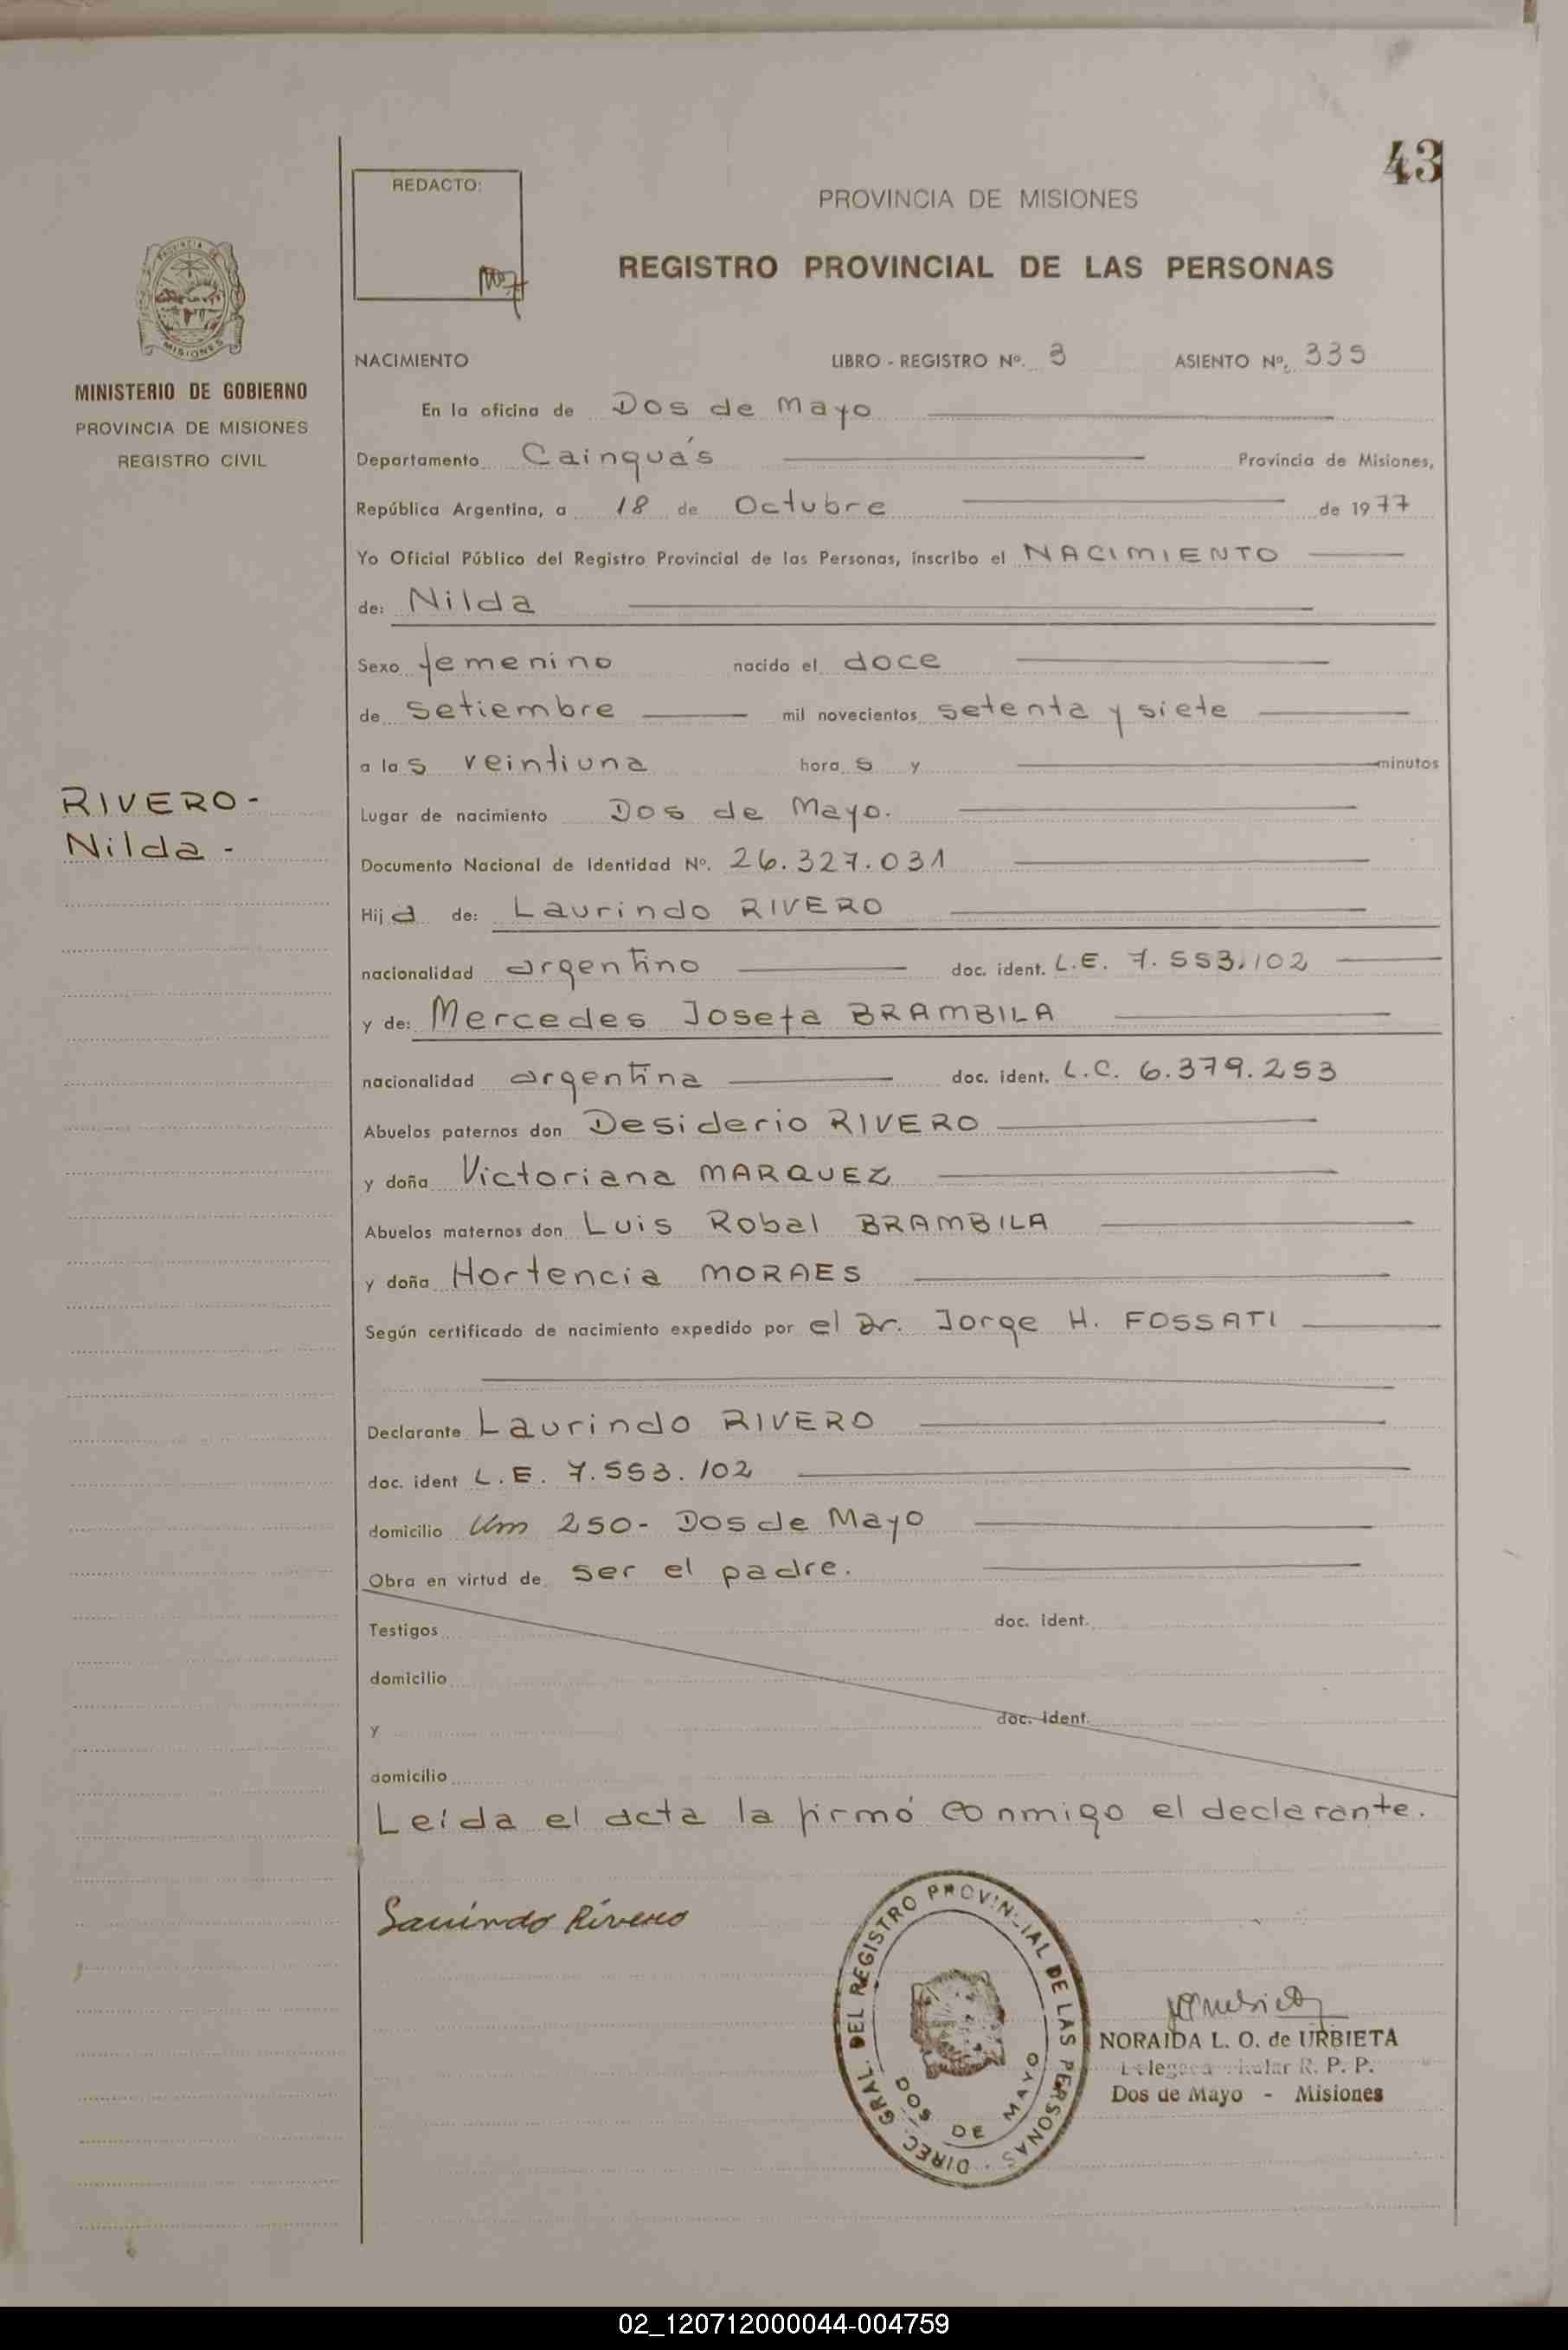 43
REDACTO:
PROVINCIA DE MISIONES
REGISTRO PROVINCIAL DE LAS PERSONAS
MINISTERIO DE GOBIERNO
PROVINCIA DE MISIONES
REGISTRO CIVIL
NACIMIENTO LIBRO - REGISTRO Nº. 3 ASIENTO Nº. 335
En la oficina de Dos de Mayo
Departamento Cainguás Provincia de Misiones,
República Argentina, a 18 de Octubre de 1977
Yo Oficial Público del Registro Provincial de las Personas, inscribo el NACIMIENTO
de: Nilda
Sexo femenino nacido el doce
de setiembre mil novecientos setenta y siete
a las veintiuna horas y minutos
RIVERO-
Nilda -
Lugar de nacimiento Dos de Mayo.
Documento Nacional de Identidad Nº. 26.327.031
Hija de: Laurindo RIVERO
nacionalidad argentino doc. ident. L.E. 7.553.102
y de: Mercedes Josefa BRAMBILA
nacionalidad argentina doc. ident. L.C. 6.379.253
Abuelos paternos don Desiderio RIVERO
y doña Victoriana MARQUEZ
Abuelos maternos don Luis Robal BRAMBILA
y doña Hortencia MORAES
Según certificado de nacimiento expedido por el Dr. Jorge H. FOSSATI
Declarante Laurindo RIVERO
doc. ident L.E. 7.553.102
domicilio Km 250- Dos de Mayo
Obra en virtud de ser el padre.
Testigos doc. ident.
domicilio
y doc. ident.
domicilio
Leída el acta la firmó conmigo el declarante.
Laurindo Rivero
DIREC. GRAL. DEL REGISTRO PROVINCIAL DE LAS PERSONAS
DOS DE MAYO
NORAIDA L. O. de URBIETA
R. P. P.
Dos de Mayo - Misiones
02_120712000044-004759